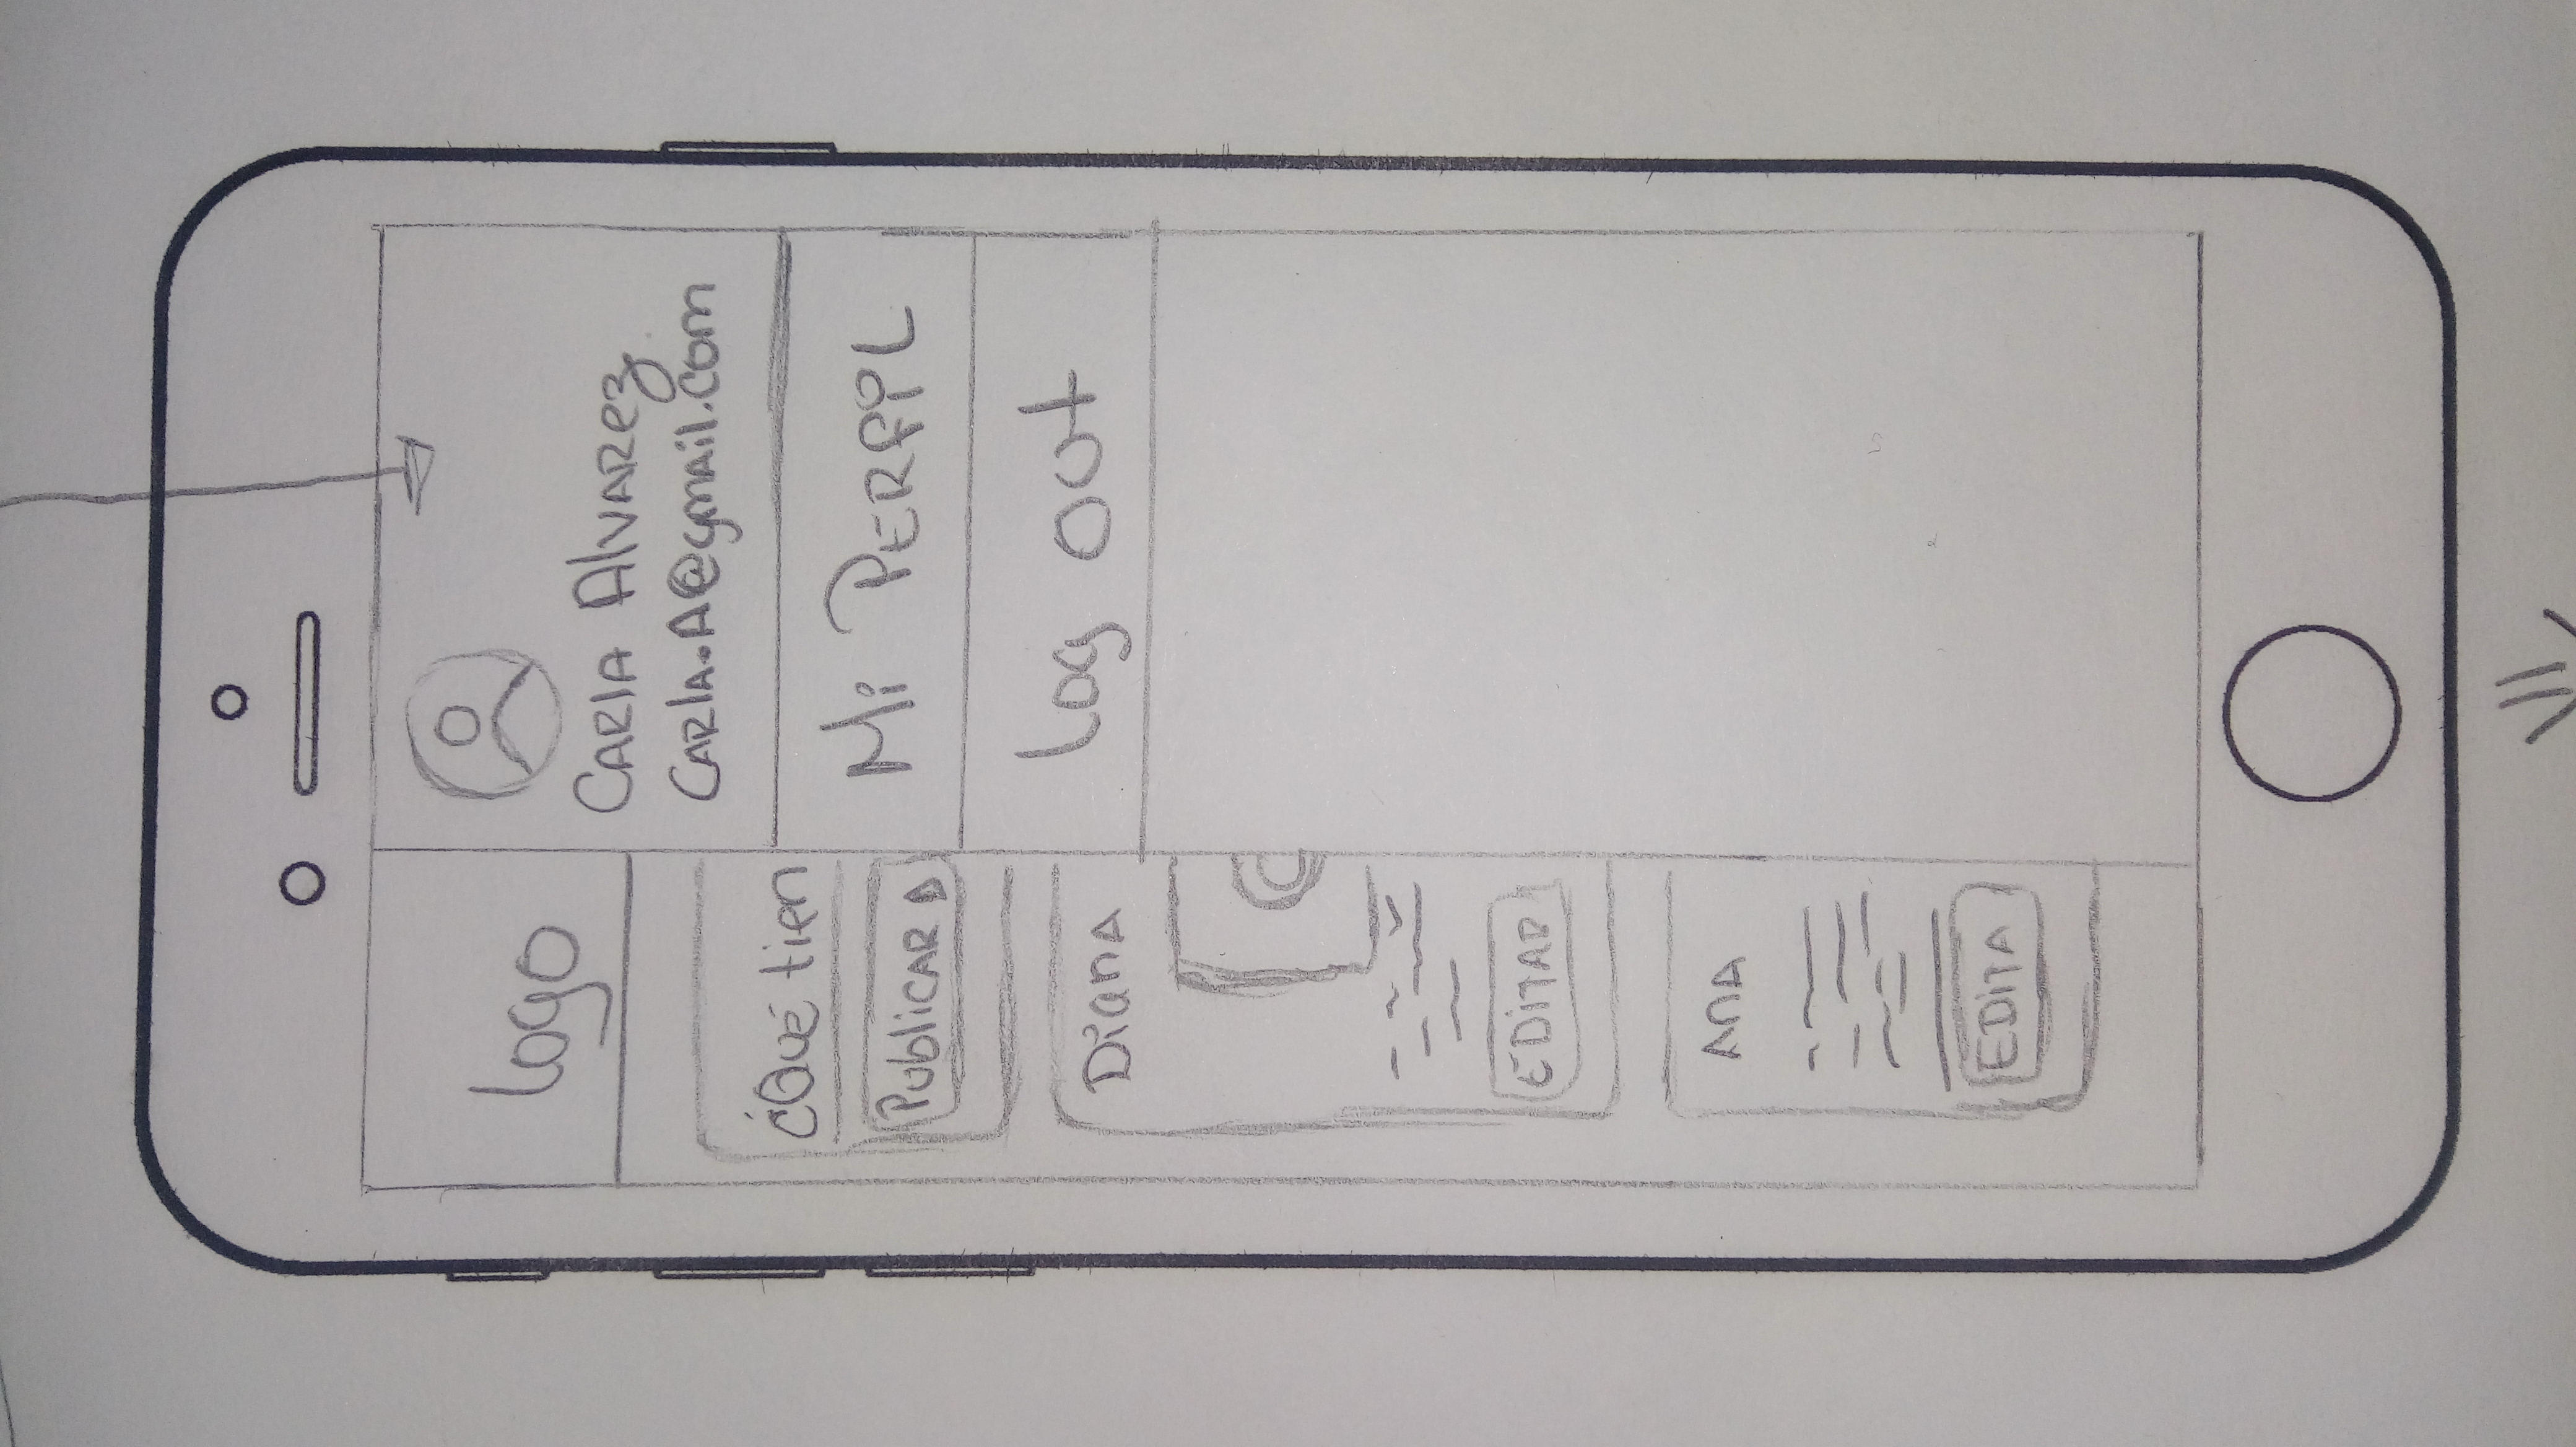 logo
¿Qué tien
Publicar A
Diana
EDITAR
ANA
EDITA
Carla Alvarez
Carla.A@gmail.com
Mi Perfil
log out